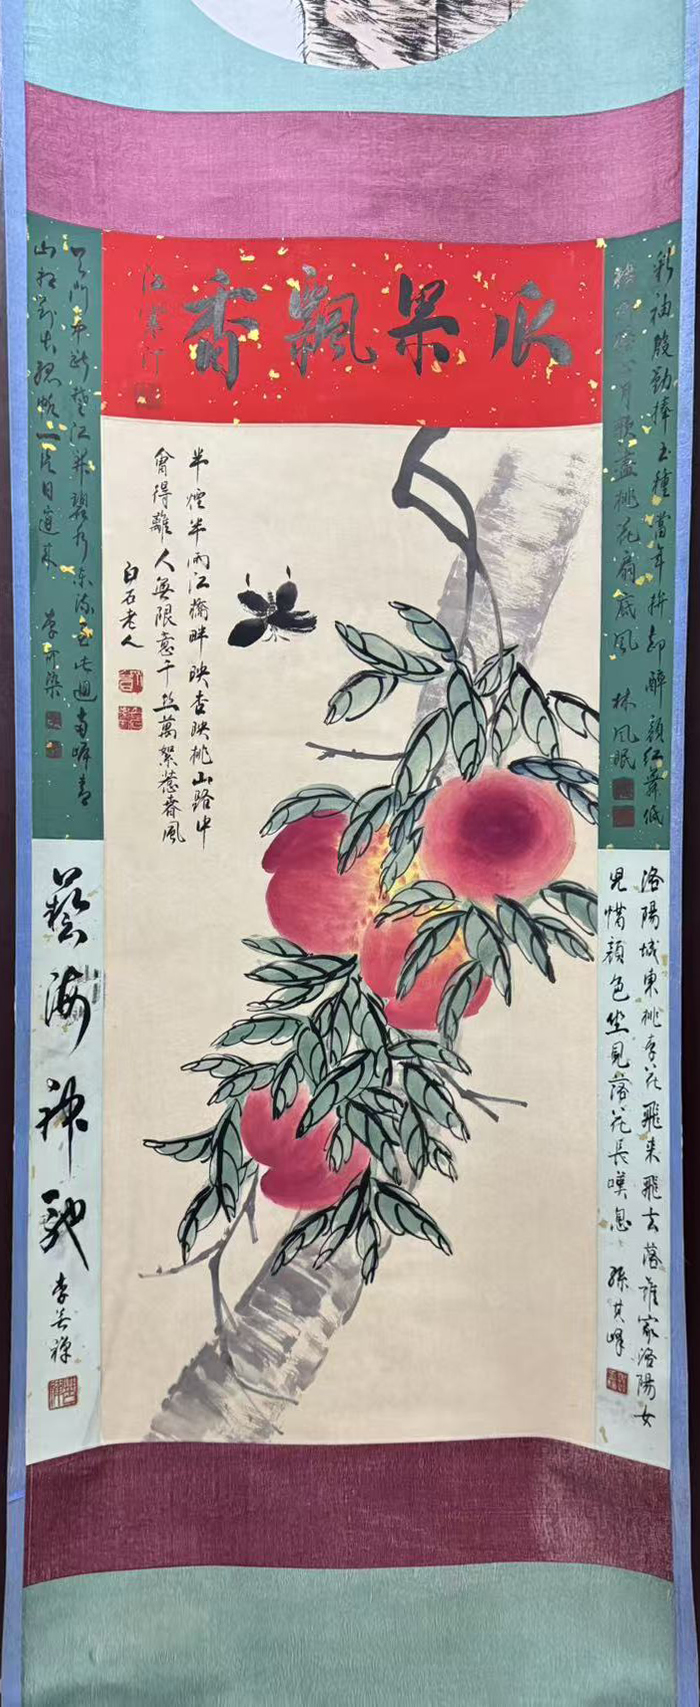 瓜果飄香
江寒汀
彩袖殷勤捧玉種當年拚却醉顏紅舞低
楊柳樓心月歌盡桃花扇底風 林風眠
天門中斷楚江開碧水東流至此迴兩岸青
山相對出孤帆一片日邊來 李可染
半煙半雨江橋畔映杏映桃山路中
會得離人無限意千丝萬絮惹春風
白石老人
洛陽城東桃李花飛來飛去落誰家洛陽女
兒惜顏色坐見落花長嘆息 孫其峰
藝海神馳
李苦禪